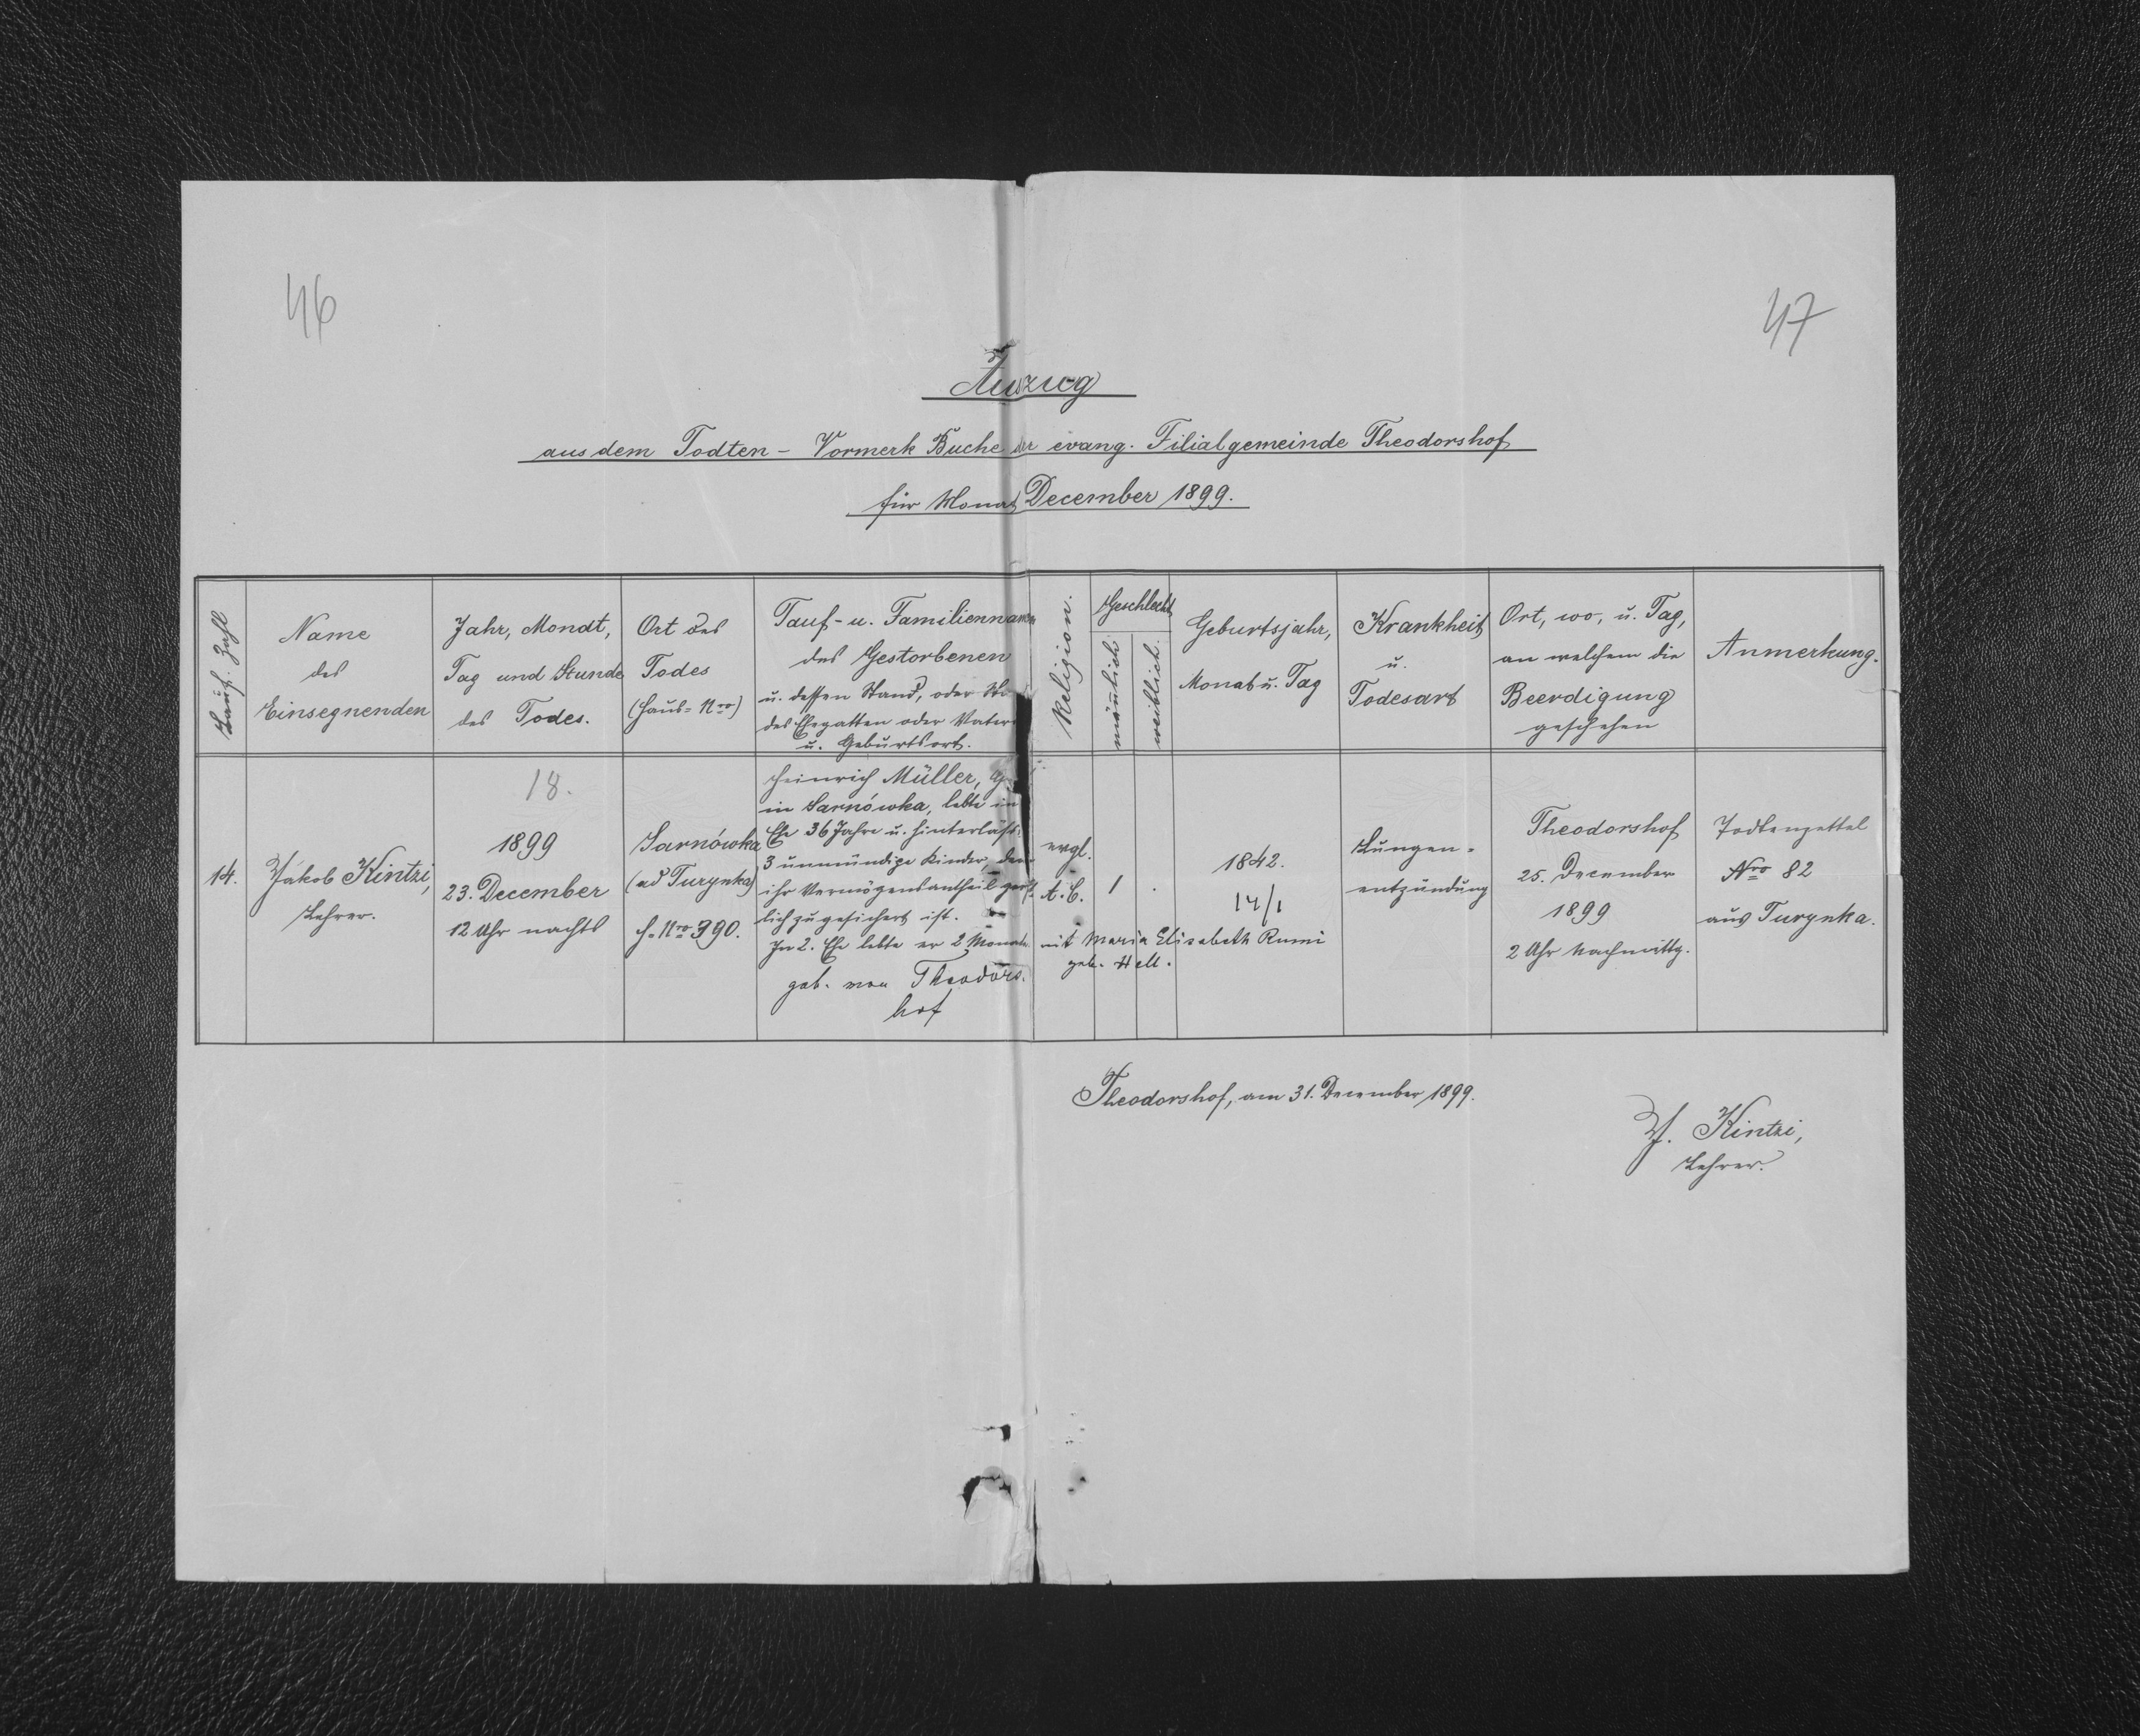 46
47
Auszug
aus dem Todten - Vormerk Buche der evang. Filialgemeinde Theodorshof
für Monat December 1899.
Lauf. Zahl
Name
des
Einsegnenden
Jahr, Monat,
Tag und Stunde
des Todes.
Ort des
Todes
(Haus=Nro)
Tauf- u. Familienname
des Gestorbenen
u. dessen Stand, oder
des Ehegatten oder Vaters
u. Geburtsort.
Religion.
Geschlecht
männlich
weiblich.
Geburtsjahr,
Monat u. Tag
Krankheit
u.
Todesart
Ort, wo, u. Tag,
an welchem die
Beerdigung
geschehen
Anmerkung.
14.
Jakob Kintzi,
Lehrer.
18.
1899
23. December
12 Uhr nachts
Sarnówka
(ad Turynka)
H. Nro 390.
Heinrich Müller,
in Sarnówka, lebte in
Ehe 36 Jahre u. hinterläßt
3 unmündige Kinder, den
ihr Vermögensantheil gert
lich zugesichert ist.
In 2. Ehe lebte er 2 Monate mit Maria Elisabeth Rumi
geb. Hell.
geb. von Theodors-
hof
evgl.
A. C.
1
.
1842.
14/1
Lungen=
entzündung
Theodorshof
25. December
1899
2 Uhr Nachmittg.
Todtenzettel
Nro 82
aus Turynka.
Theodorshof, am 31. December 1899.
J. Kintzi,
Lehrer.